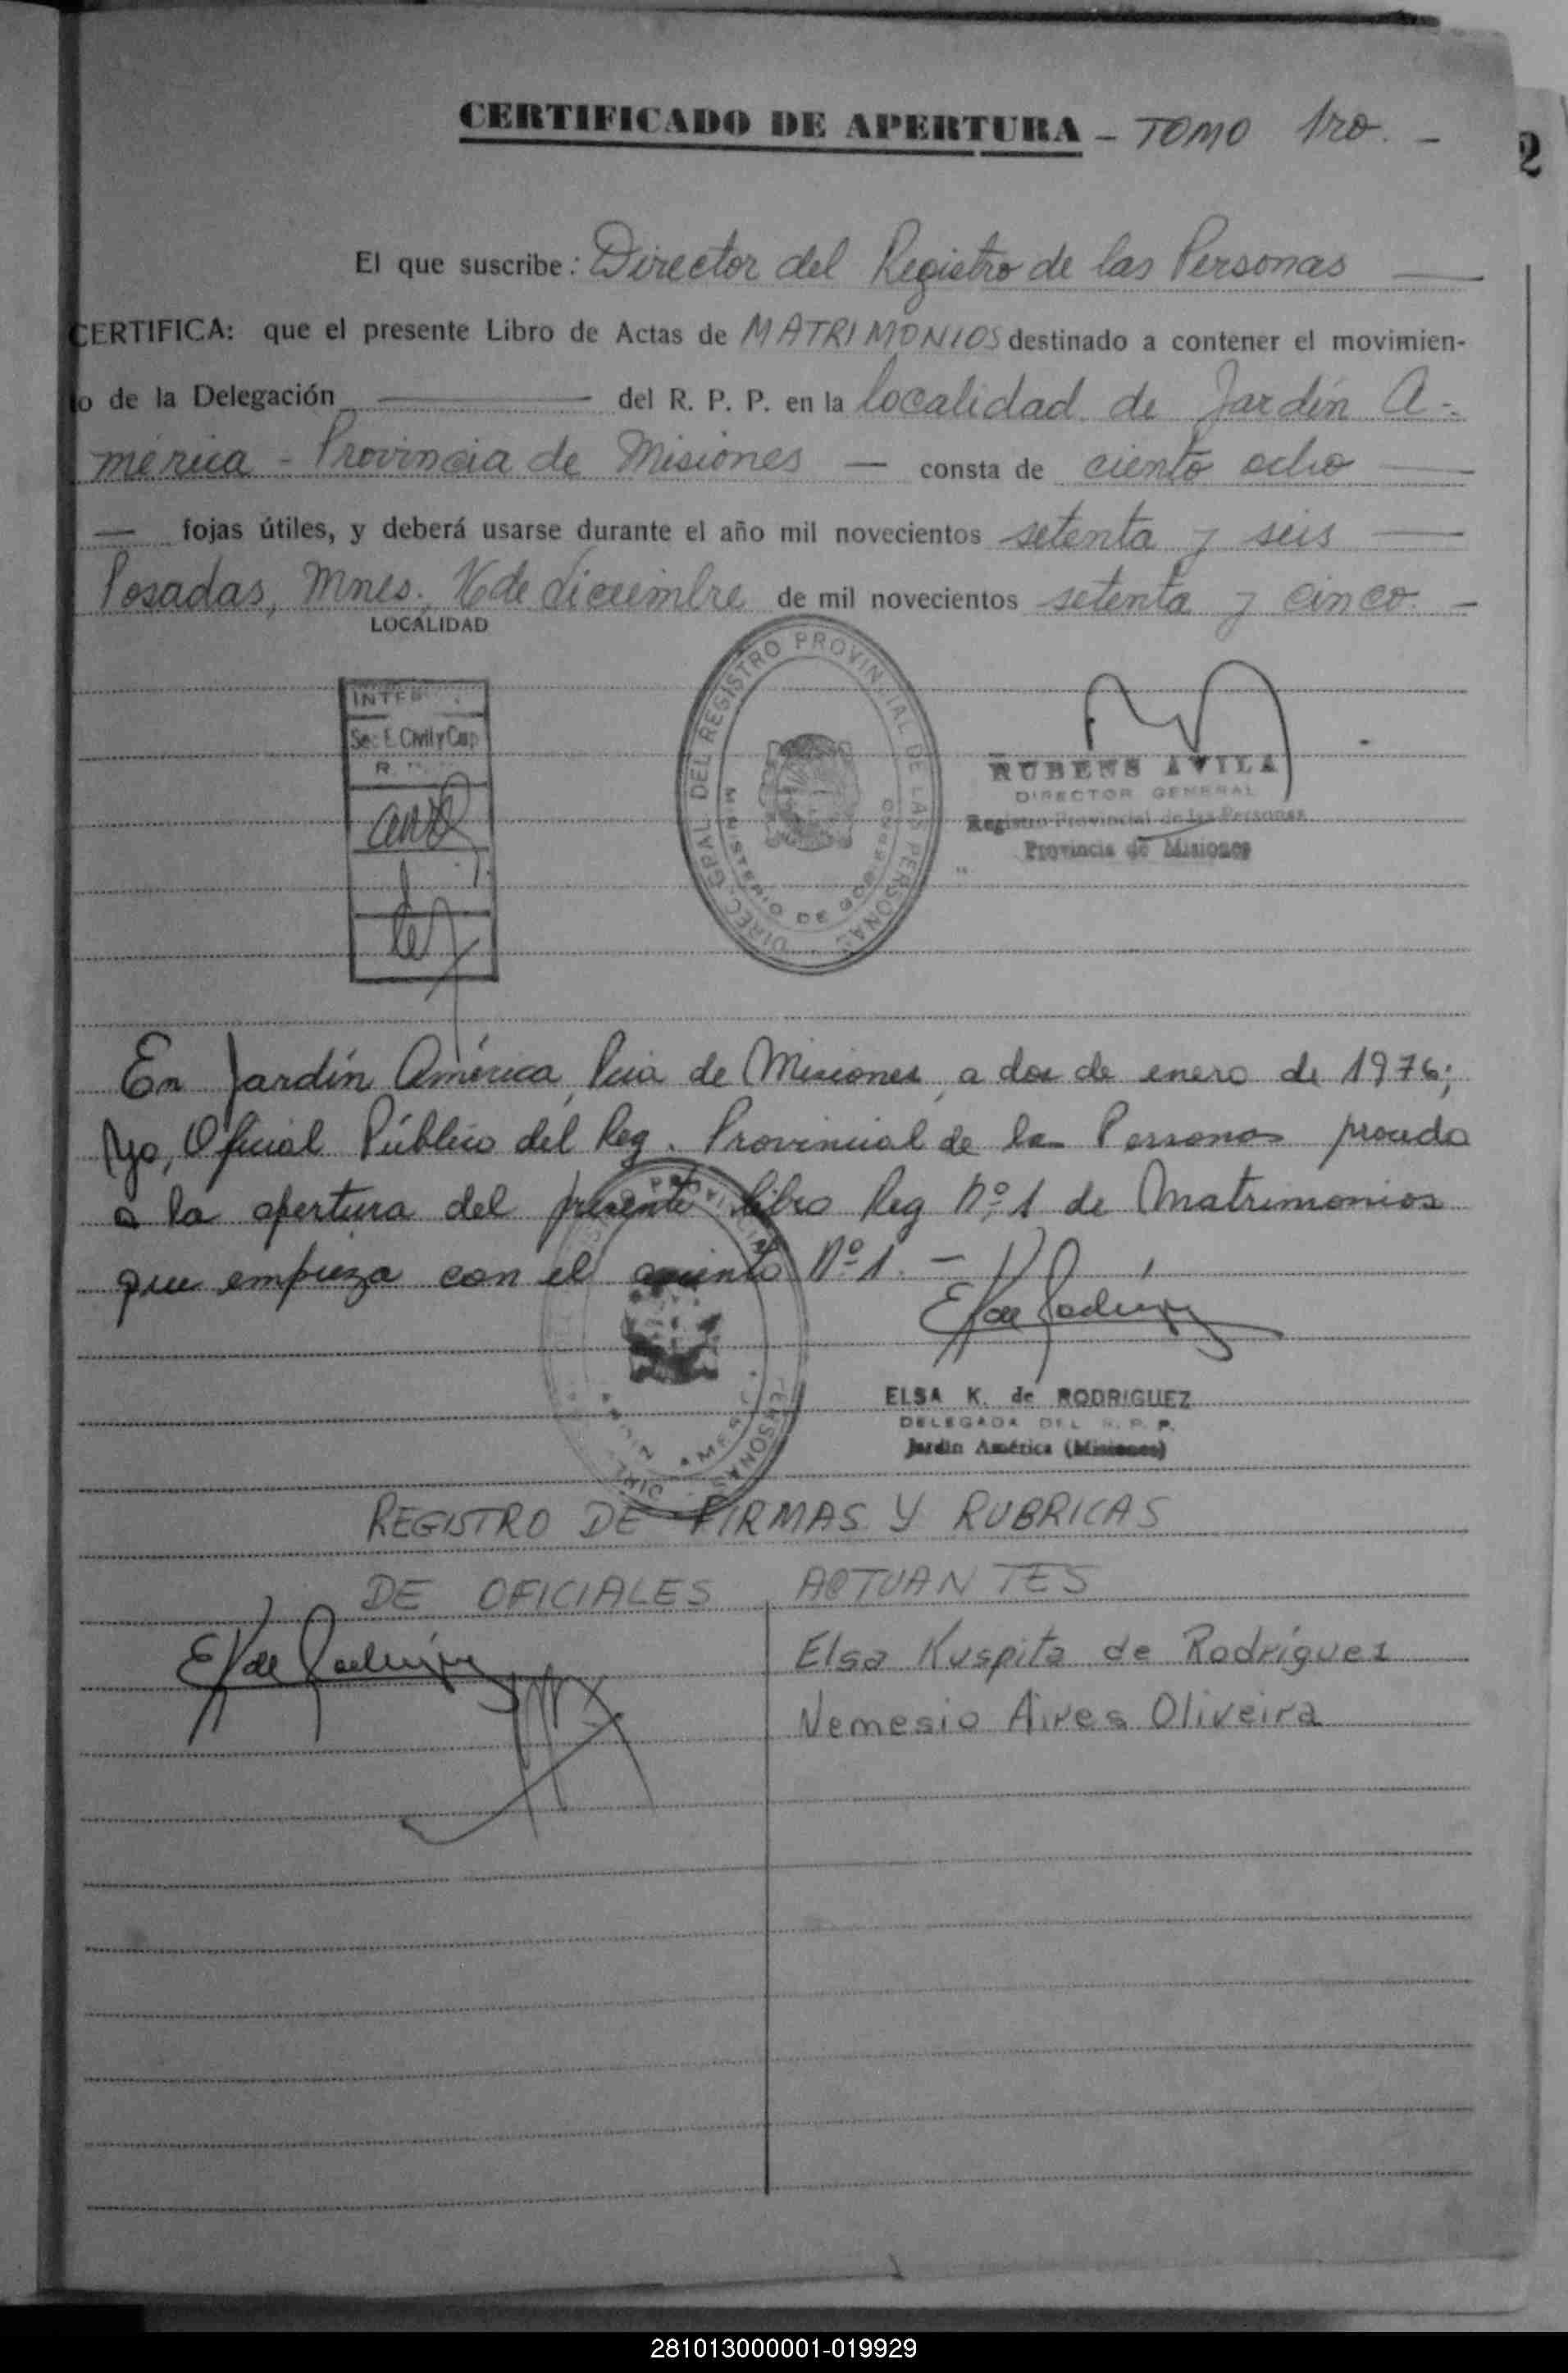 CERTIFICADO DE APERTURA - TOMO 1ro. -
2
El que suscribe: Director del Registro de las Personas
CERTIFICA: que el presente Libro de Actas de MATRIMONIOS destinado a contener el movimien-
o de la Delegación del R. P. P. en la localidad de Jardín A-
mérica - Provincia de Misiones - consta de ciento ocho
fojas útiles, y deberá usarse durante el año mil novecientos setenta y seis
Posadas, Mnes. 16 de diciembre de mil novecientos setenta y cinco. -
LOCALIDAD
Sec. E. Civil y Cap
DIREC. GRAL. DEL REGISTRO PROVINCIAL DE LAS PERSONAS
MINISTERIO DE GOBIERNO
RUBENS AVILA
DIRECTOR GENERAL
Registro Provincial de las Personas
Provincia de Misiones
En Jardín América, Pcia de Misiones, a dos de enero de 1976;
Yo, Oficial Público del Reg. Provincial de las Personas procedo
a la apertura del presente libro Reg Nº 1 de Matrimonios
que empieza con el asiento Nº 1. -
ELSA K. de RODRIGUEZ
DELEGADA DEL R. P. P.
Jardín América (Misiones)
REGISTRO DE FIRMAS Y RUBRICAS
DE OFICIALES ACTUANTES
Elsa Kuspita de Rodríguez
Nemesio Aires Oliveira
281013000001-019929